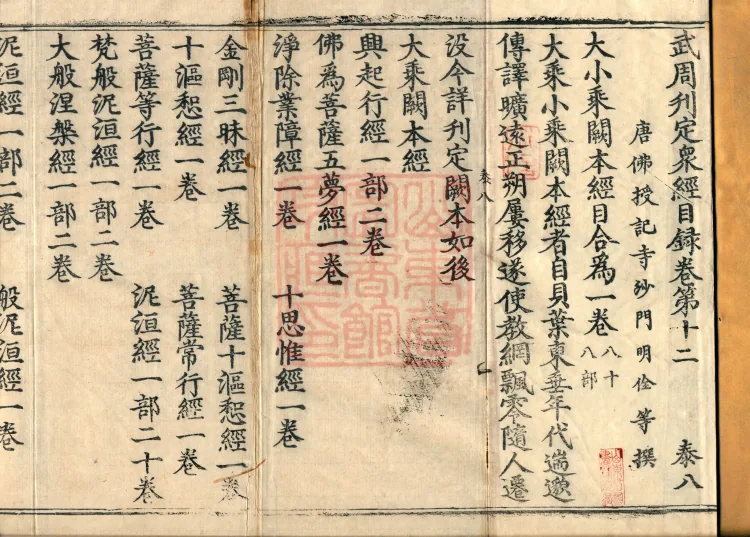 武周刊定衆經目録卷第十二 泰八
唐佛授記寺沙門明佺等撰
大小乘闕本經目合為一卷 八十八部
大乘小乘闕本經者自貝葉東垂年代遄邈
傳譯曠遠正朔屢移遂使教綱飄零隨人遷
泰八
没今詳刊定闕本如後
大乘闕本經
興起行經一部二卷
佛為菩薩五夢經一卷
淨除業障經一卷 十思惟經一卷
金剛三昧經一卷 菩薩十漚惒經一卷
十漚惒經一卷 菩薩常行經一卷
菩薩等行經一卷 泥洹經一部二十卷
梵般泥洹經一部二卷
大般涅槃經一部二卷
泥洹經一部二卷 般泥洹經一卷